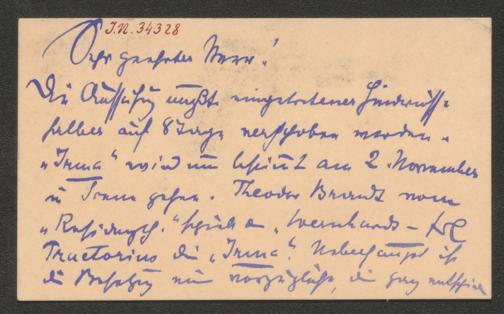 J.N. 34328
Sehr geehrter Herr!
Die Aufführung mußte eingetretener Hindernisse
halber auf 8 Tage verschoben werden.
"Irma" wird nun bestimmt am 2. November
in Szene gehen. Theodor Brandt vom
"Residenzth." spielt den Bernhardt –
Praetorius die "Irma". ist
die Besetzung eine vorzügliche, die ganz